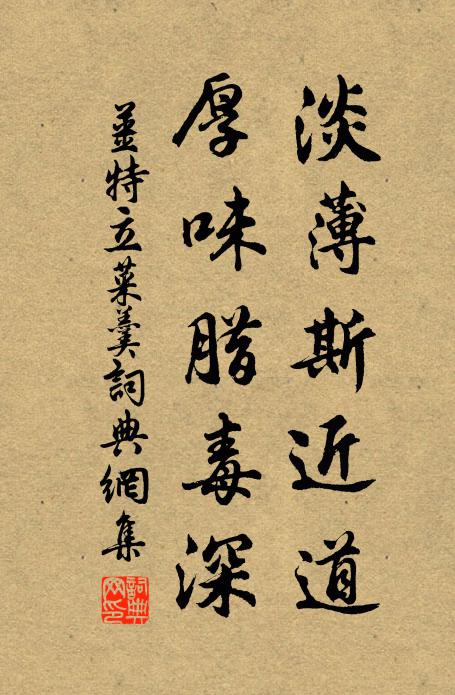 淡薄斯近道
厚味腊毒深
姜特立菜羹詞典網集
詞典網印